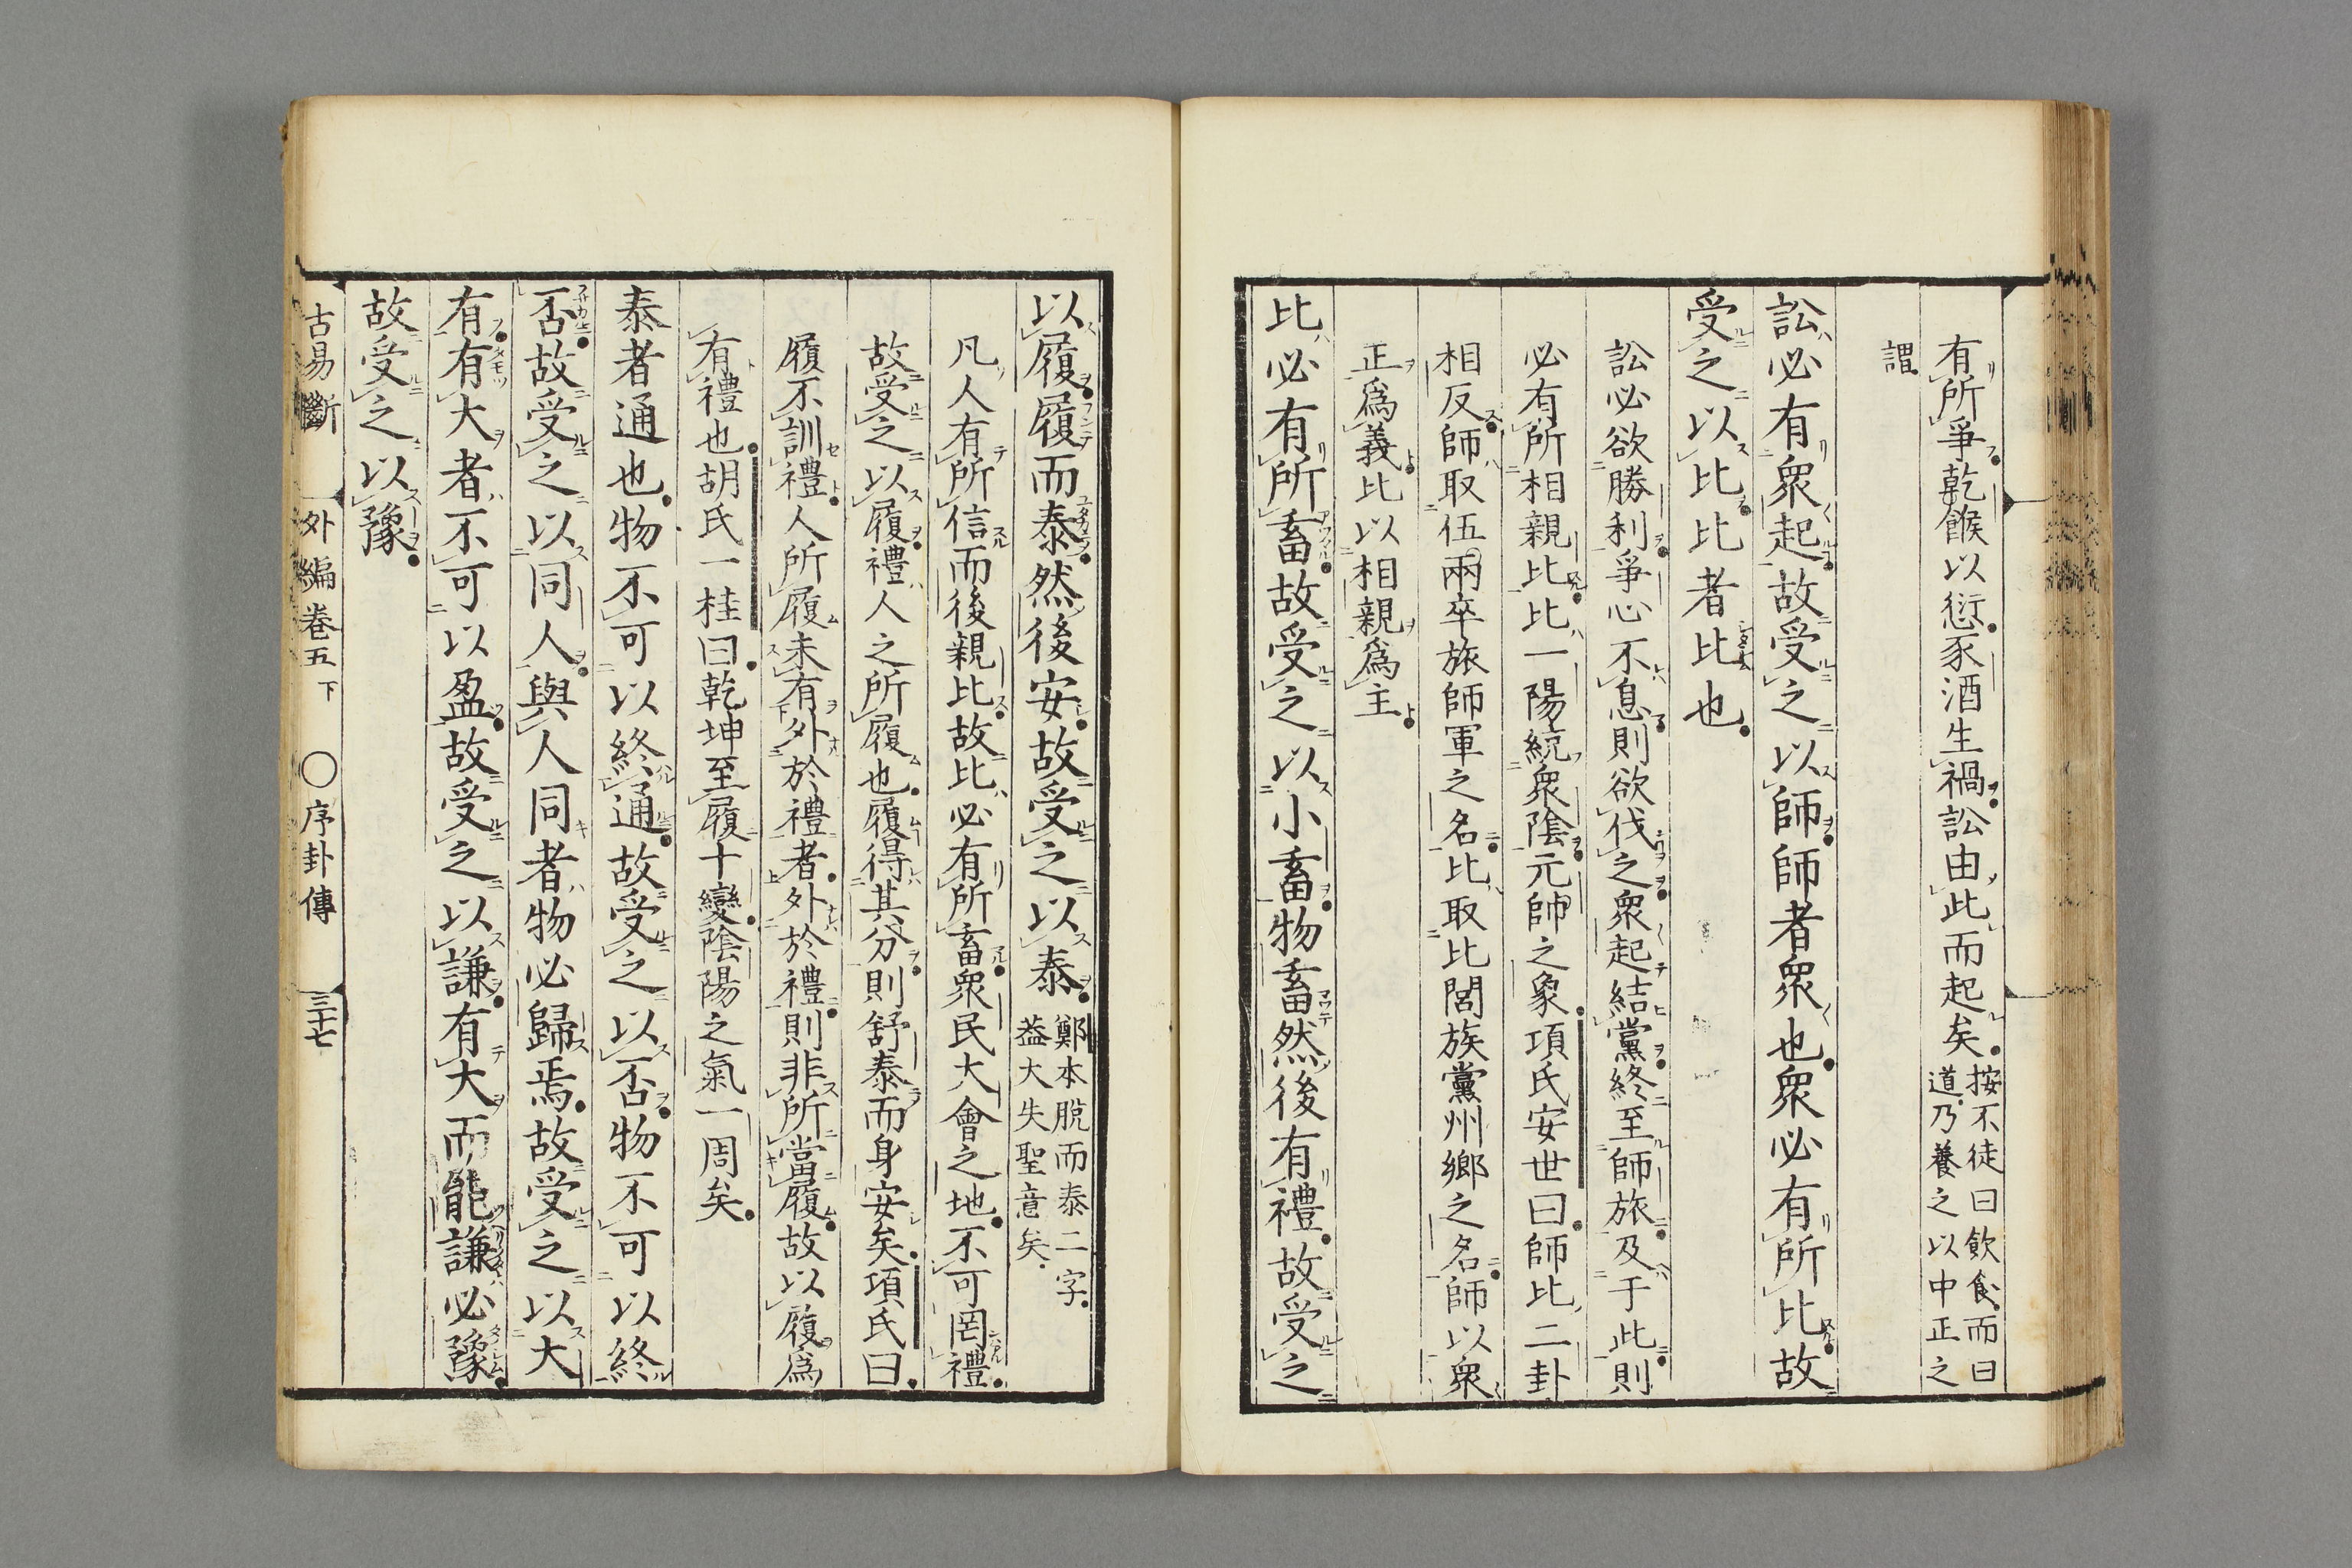 有所爭乾餱以愆豕酒生禍訟由此而起矣按不徒曰飲食而曰
道乃養之以中正之
謂
訟必有衆起故受之以師師者衆也衆必有所比故
受之以比比者比也
訟必欲勝利爭心不息則欲伐之衆起結黨終至師旅及于此則
必有所相親比比一陽統衆陰元帥之象項氏安世曰師比二卦
相反師取伍兩卒旅師軍之名比取比閭族黨州鄉之名師以衆
正爲義比以相親爲主
比必有所畜故受之以小畜物畜然後有禮故受之
以履履而泰然後安故受之以泰鄭本脫而泰二字
葢大失聖意矣
凡人有所信而後親比故比必有所畜衆民大會之地不可罔禮
故受之以履禮人之所履也履得其分則舒泰而身安矣項氏曰
履不訓禮人所履未有外於禮者外於禮則非所當履故以履爲
有禮也胡氏一桂曰乾坤至履十變陰陽之氣一周矣
泰者通也物不可以終通故受之以否物不可以終
否故受之以同人與人同者物必歸焉故受之以大
有有大者不可以盈故受之以謙有大而能謙必豫
故受之以豫
古易斷 外編卷五下 ○序卦傳 三十七